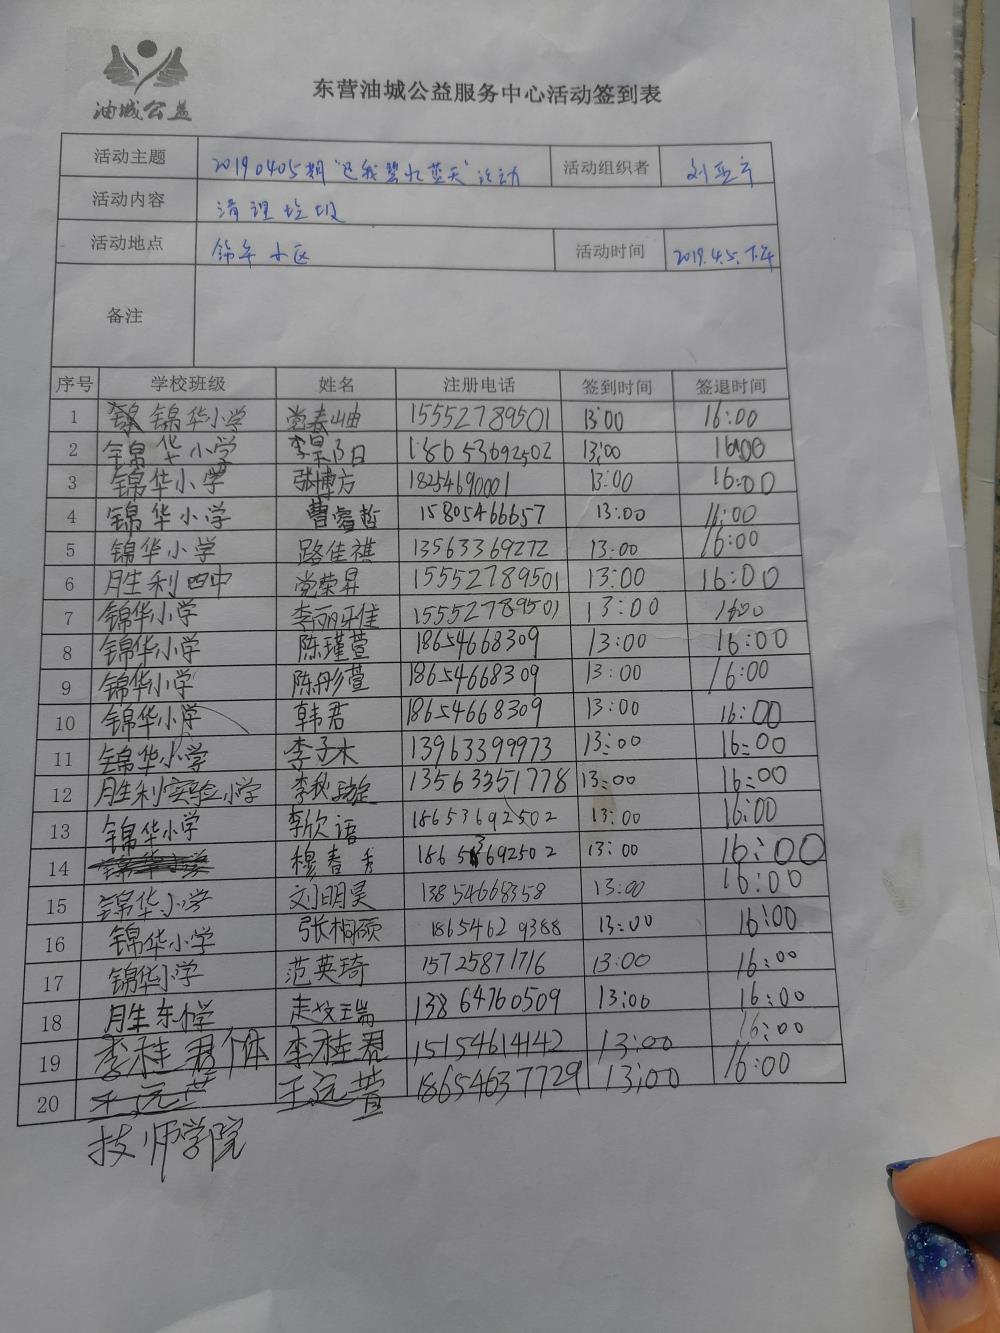 油城公益
东营油城公益服务中心活动签到表
活动主题 20190405期"还我碧水蓝天"活动 活动组织者
活动内容 清理垃圾
活动地点 锦华小区 活动时间 2019.4.5.下午
备注
序号 学校班级 姓名 注册电话 签到时间 签退时间
1 锦华小学 党春曲 15552789501 13:00 16:00
2 锦华小学 18653692502 13:00 16:00
3 锦华小学 张博方 18254690001 13:00 16:00
4 锦华小学 曹睿哲 15805466657 13:00 16:00
5 锦华小学 路佳祺 13563369272 13:00 16:00
6 胜利四中 党荣昇 15552789501 13:00 16:00
7 锦华小学 李丽佳 15552789501 13:00 16:00
8 锦华小学 陈瑾萱 18654668309 13:00 16:00
9 锦华小学 陈彤萱 18654668309 13:00 16:00
10 锦华小学 韩君 18654668309 13:00 16:00
11 锦华小学 李子木 13963399973 13:00 16:00
12 胜利实验小学 13563351778 13:00 16:00
13 锦华小学 李欣语 18653692502 13:00 16:00
14 穆春秀 18653692502 13:00 16:00
15 锦华小学 刘明昊 13854668358 13:00 16:00
16 锦华小学 张桐硕 18654629388 13:00 16:00
17 锦华小学 范英琦 15725871716 13:00 16:00
18 胜东小学 13864760509 13:00 16:00
19 李桂君个体 李桂君 15154614142 13:00 16:00
20 王远萱 王远萱 18654637729 13:00 16:00
技师学院